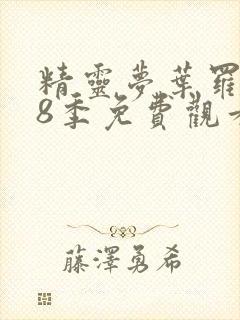 精靈夢葉羅
8季免費觀
藤澤勇希